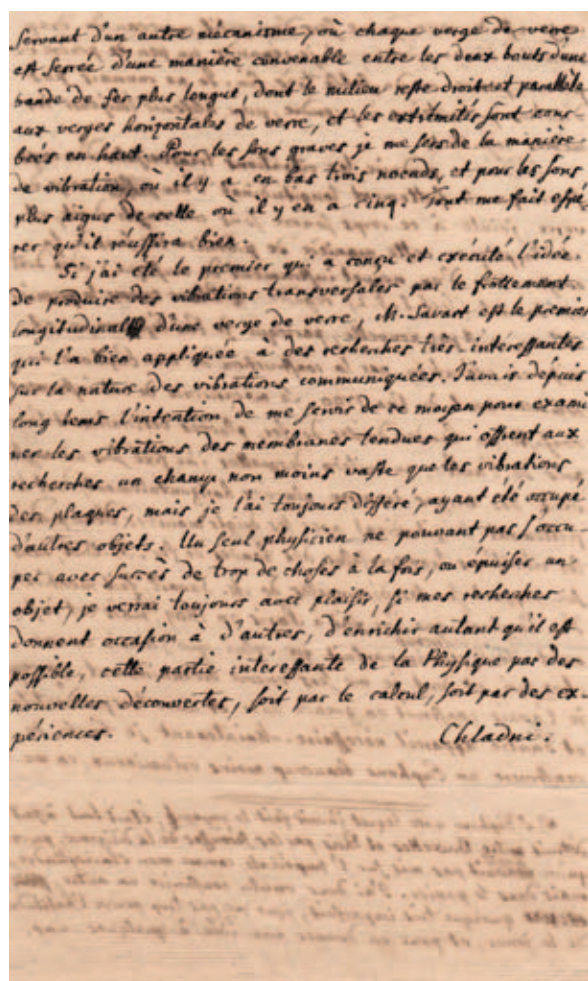 servant d'un autre mécanisme, où chaque verge de verre
est serrée d'une manière convenable entre les deux bouts d'une
bande de fer plus longue, dont le milieu reste droit et parallèle
aux verges horizontales de verre, et les extrêmités sont cour
bées en haut. Pour les sons graves je me sers de la manière
de vibration, où il y a en bas trois noeuds, et pour les sons
plus aigus de celle où il y en a cinq. Tout me fait espé
rer qu'il réussira bien.
Si j'ai été le premier qui a conçu et exécuté l'idée
de produire des vibrations transversales par le frottement
longitudinal d'une verge de verre, M. Savart est le premier
qui l'a bien appliquée à des recherches très-intéressantes
sur la nature des vibrations communiquées. J'avais depuis
long tems l'intention de me servir de ce moyen pour exami
ner les vibrations des membranes tendues qui offrent aux
recherches un champ non moins vaste que les vibrations
des plaques, mais je l'ai toujours différé, ayant été occupé
d'autres objets. Un seul physicien ne pouvant pas s'occu-
per avec succès de trop de choses à la fois, ou épuiser un
objet, je verrai toujours avec plaisir, si mes recherches
donnent occasion à d'autres, d'enrichir autant qu'il est
possible, cette partie interessante de la Physique par des
nouvelles découvertes, soit par le calcul, soit par des ex-
périences. Chladni.